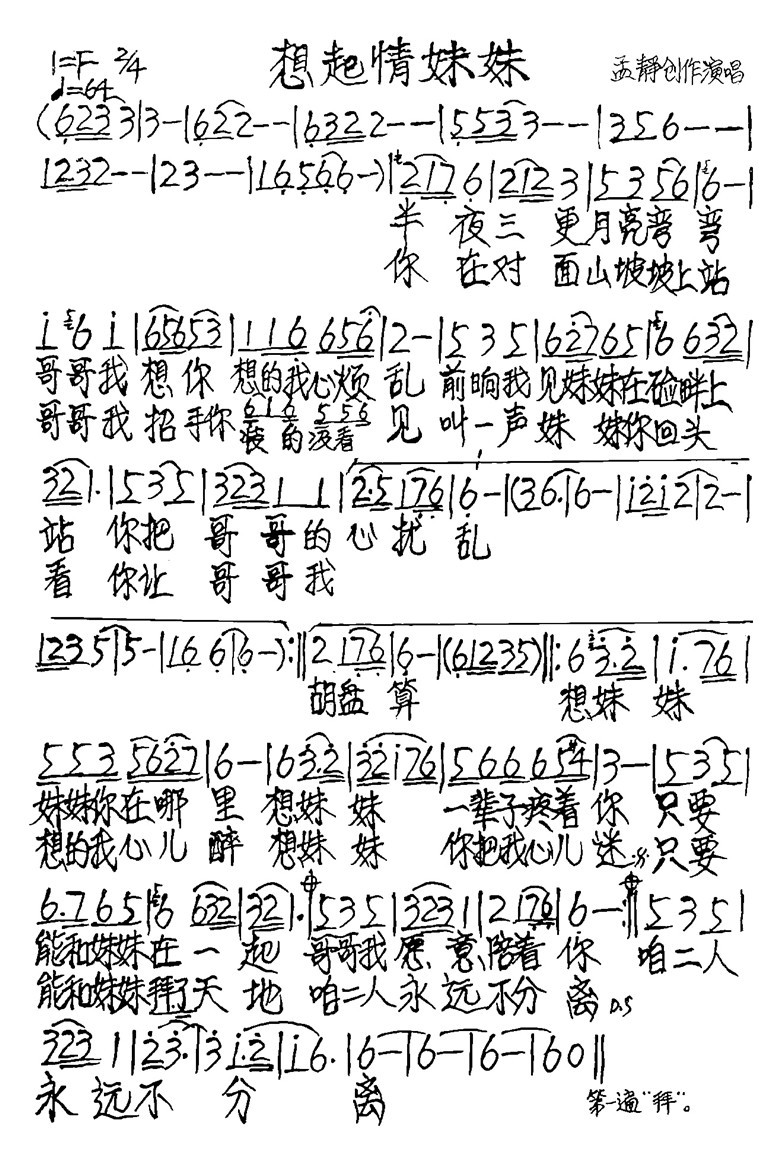 想起情妹妹
1=F 2/4
♩=64
孟静创作演唱
(6 2 3 3|3 - |6 2 2 - - |6 3 2 2 - - - |5 5 3 3 - - |3 5 6 - - - |
1 2 3 2 - - |2 3 - - - |1 6 5 6 6 - )|2 1 7 6|2 1 2 3|5 3 5 6|6 - |
半夜三更月亮弯弯
你在对面山坡坡上站
i 6 i |6 5 6 5 5 3|1 1 6 6 5 6|2 - |5 3 5|6 2 7 6 5|6 6 3 2|
哥哥我想你想的我心烦乱前晌我见妹妹在硷畔上
哥哥我招手你 没看见叫一声妹妹你回头
6 1 6 5 5 6
3 2 1 . |5 3 5|3 2 3 1 1|2 . 5 1 7 6|6 - |(3 6 . |6 - |i 2 i 2|2 - |
站你把哥哥的心扰乱
看你让哥哥我
1 2 3 5|5 - |1 6 6|6 - ):‖2 1 7 6|6 - |(6 1 2 3 5)‖: 6 3 . 2|i . 7 6|
胡盘算 想妹妹
5 5 3 5 6 2 7|6 - |6 3 . 2|3 2 i 7 6|5 6 6 6 5 #4|3 - |5 3 5|
妹妹你在哪里想妹妹一辈子疼着你只要
想的我心儿醉想妹妹你把我心儿迷只要
6 . 7 6 5|6 6 3 2|3 2 1 . |5 3 5|3 2 3 1|2 1 7 6|6 - :‖5 3 5|
能和妹妹在一起哥哥我愿意陪着你咱二人
能和妹妹拜了天地咱二人永远不分离 D.S
3 2 3 1|2 3 . |3 i . 2|i 6 . |6 - |6 - |6 - |6 0‖
永远不分离
第一遍“拜”。